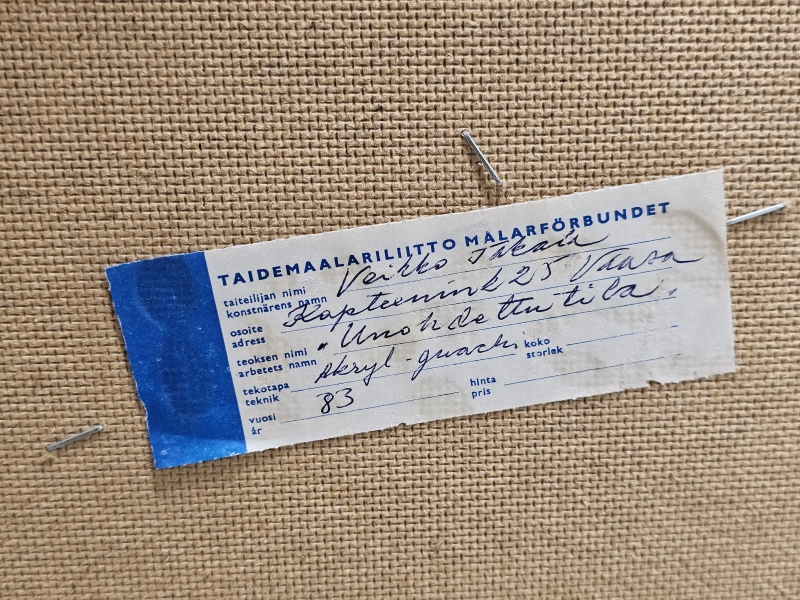 TAIDEMAALARILIITTO MÅLARFÖRBUNDET
taiteilijan nimi Veikko Takala
konstnärens namn
osoite Kapteenink 25 Vaasa
adress
teoksen nimi "Unohdettu tila"
arbetets namn
tekotapa Akryl-guachi koko
teknik storlek
vuosi 83 hinta
år pris